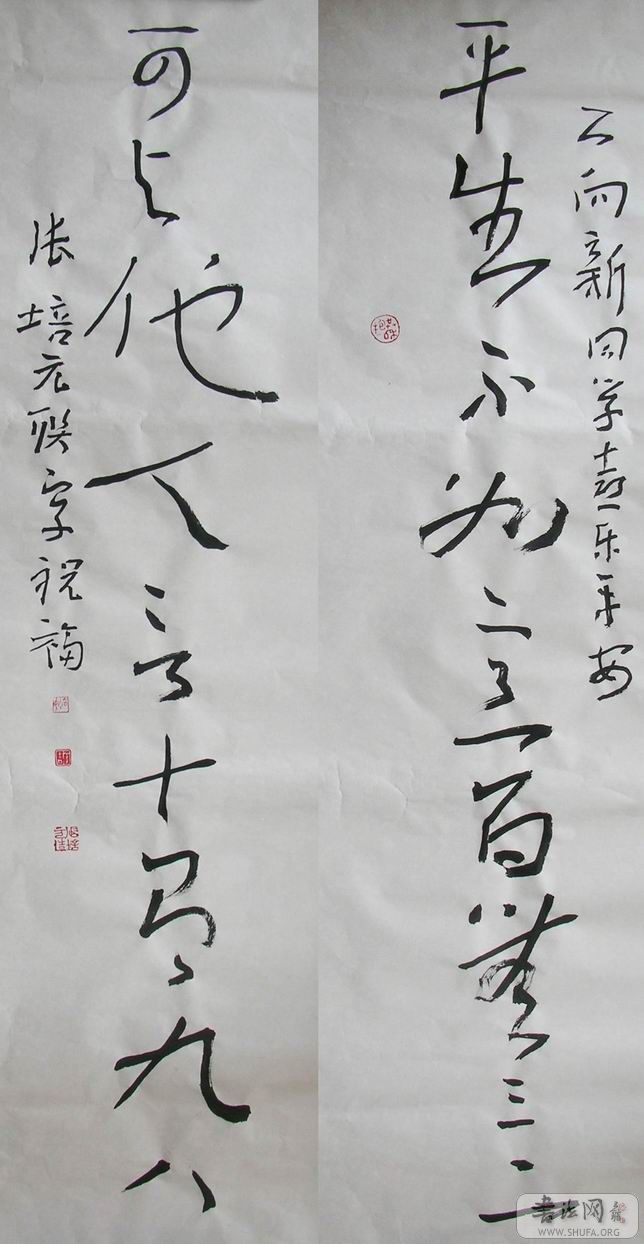 向新同学喜乐平安
平生不如意百無三二
可与他人言十有九八
张培元联字祝福
書法网
WWW.SHUFA.ORG